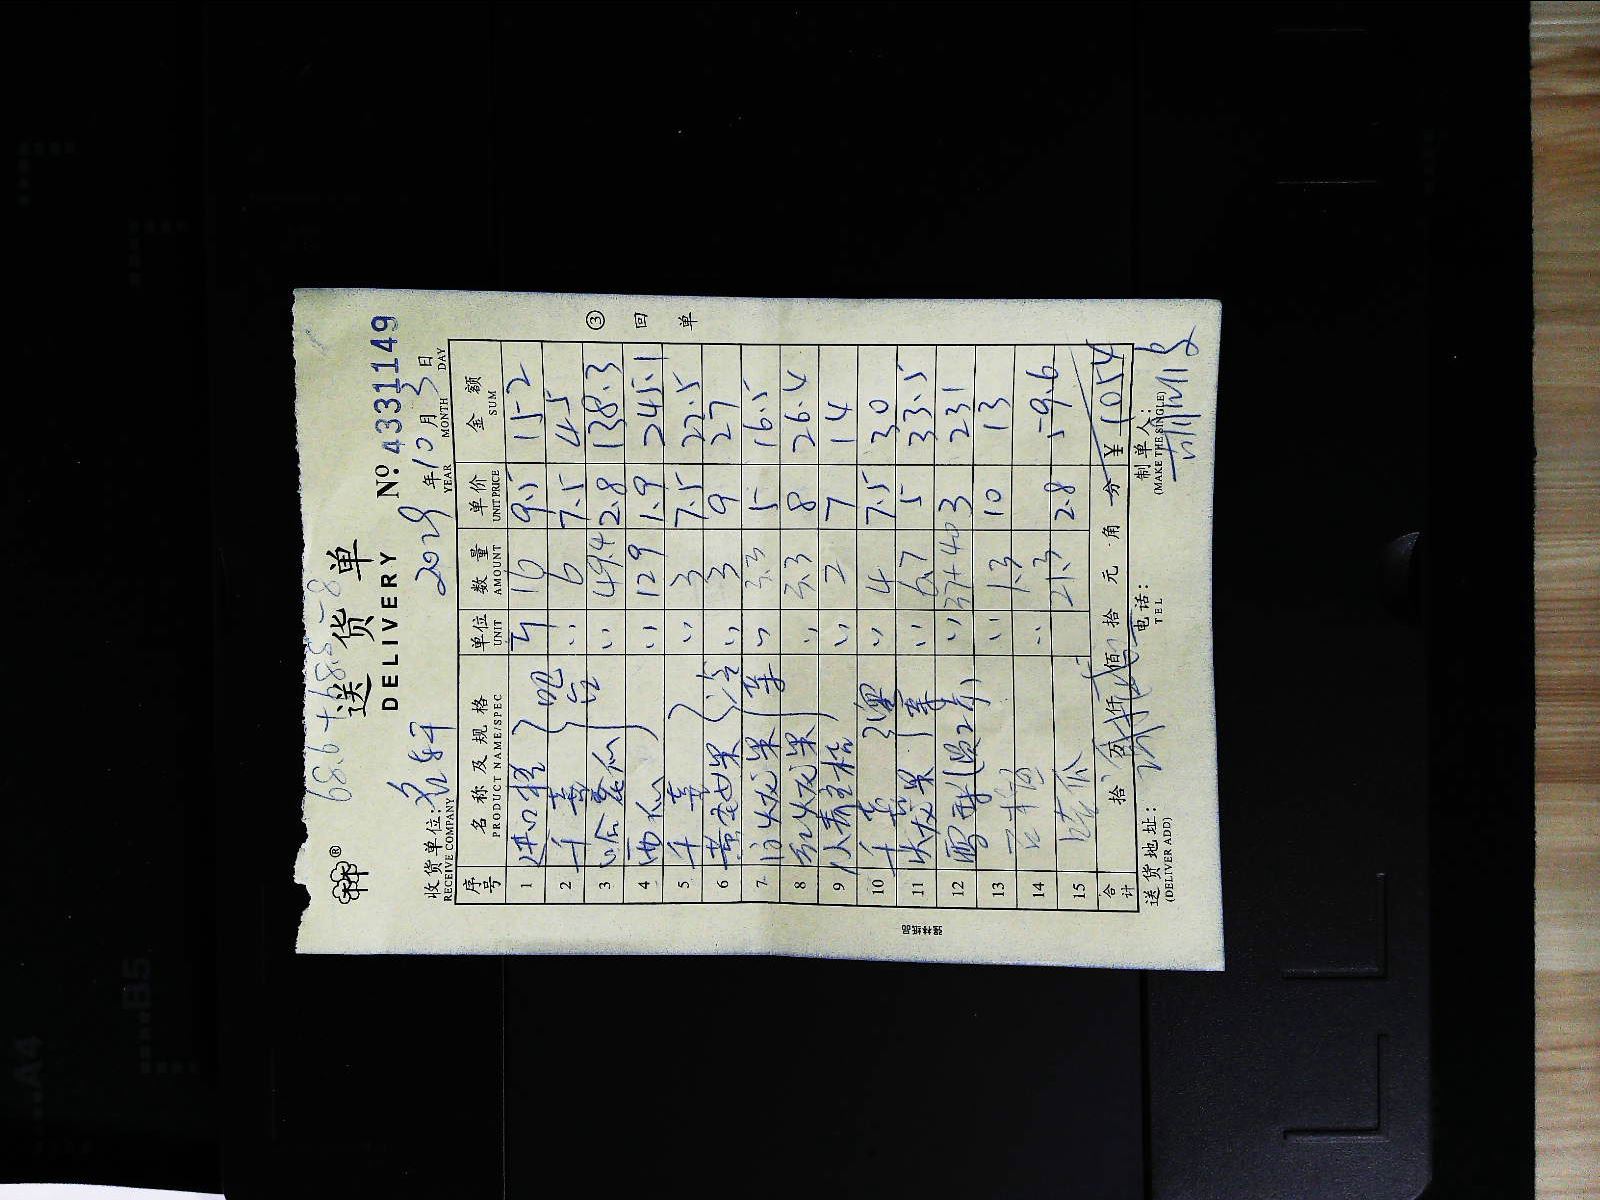 68.6+68.8-8
送货单
DELIVERY
No: 4331149
收货单位:
RECEIVE COMPANY
2029 年 10 月 3 日
YEAR MONTH DAY
序号 名称及规格 单位 数量 单价 金额
PRODUCT NAME/SPEC UNIT AMOUNT UNIT PRICE SUM
1 进口橙 斤 16 9.5 152
2 千禧 〃 6 7.5 45
3 哈密瓜 〃 49.4 2.8 138.3
4 西瓜 〃 129 1.9 245.1
5 千禧 〃 3 7.5 22.5
6 黄金果 〃 3 9 27
7 白火龙果 〃 3.3 5 16.5
8 红火龙果 〃 3.3 8 26.4
9 小青桔 〃 2 7 14
10 千禧 〃 4 7.5 30
11 火龙果 〃 6.7 5 33.5
12 雪梨 〃 37+40 3 231
13 〃 1.3 10 13
14 〃
15 21.3 2.8 59.6
合计 拾 万 仟 佰 拾 元 角 分 ¥ 1054
送货地址:
(DELIVER ADD)
电话:
TEL
制单人:
(MAKE THE SINGLE)
③ 回单